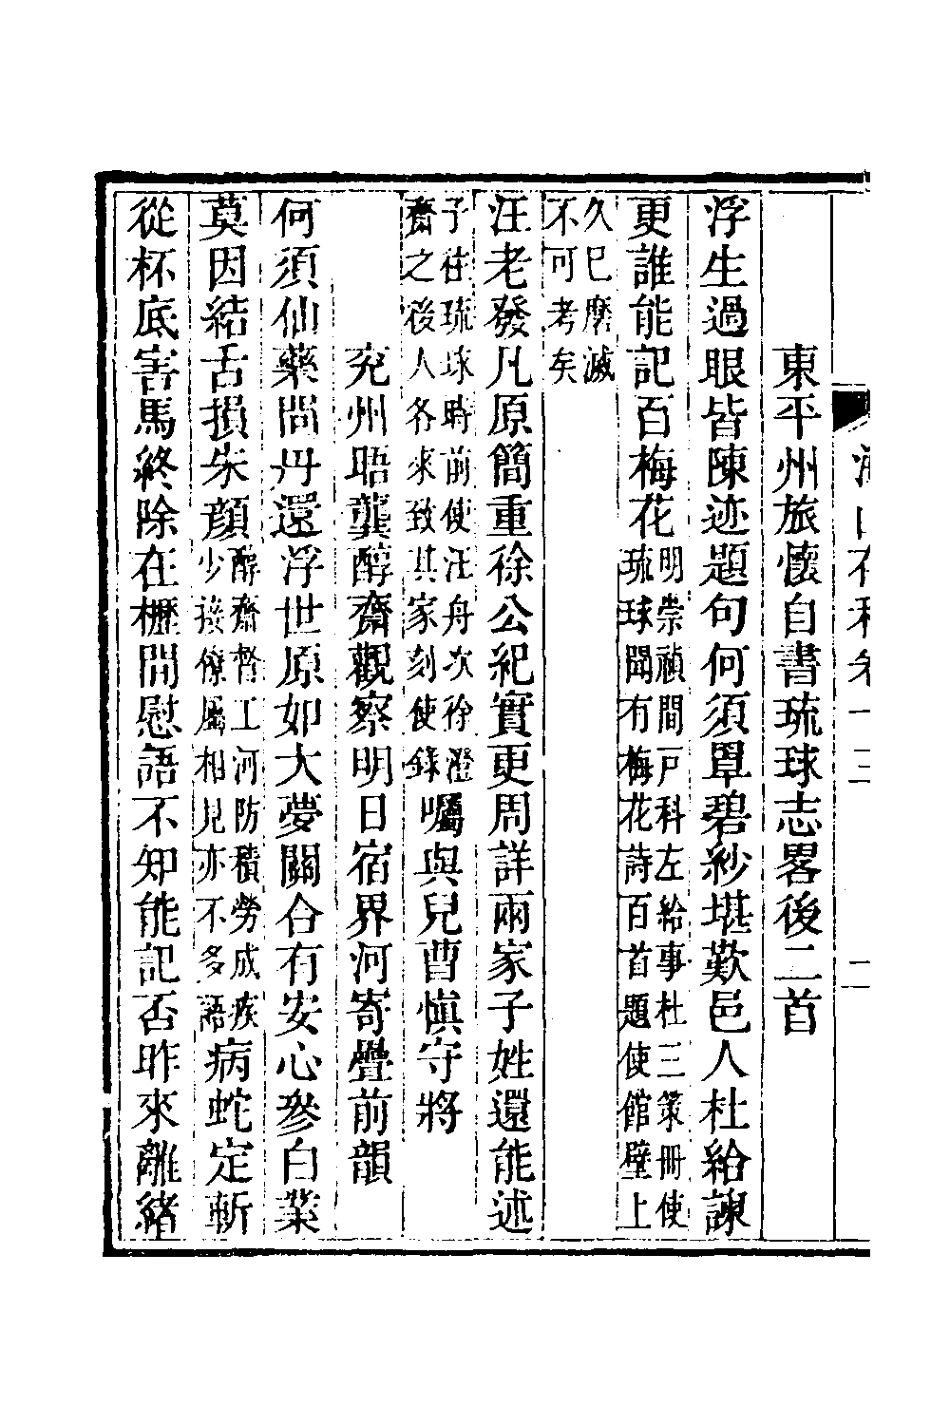 東平州旅懷自書琉球志畧後二首
浮生過眼皆陳迹題句何須罩碧紗堪歎邑人杜給諫
更誰能記百梅花
明崇禎間戶科左給事杜三策冊使
琉球聞有梅花詩百首題使館壁上
久已磨滅
不可考矣
汪老發凡原簡重徐公紀實更周詳兩家子姓還能述
予往琉球時前使汪舟次徐澄
齋之後人各來致其家刻使錄
囑與兒曹慎守將
兖州晤龔醇齋觀察明日宿界河寄疊前韻
何須仙藥問丹還浮世原如大夢關合有安心參白業
莫因結舌損朱顏
醇齋督工河防積勞成疾
少接僚屬相見亦不多語
病蛇定斬
從杯底害馬終除在櫪間慰語不知能記否昨來離緒